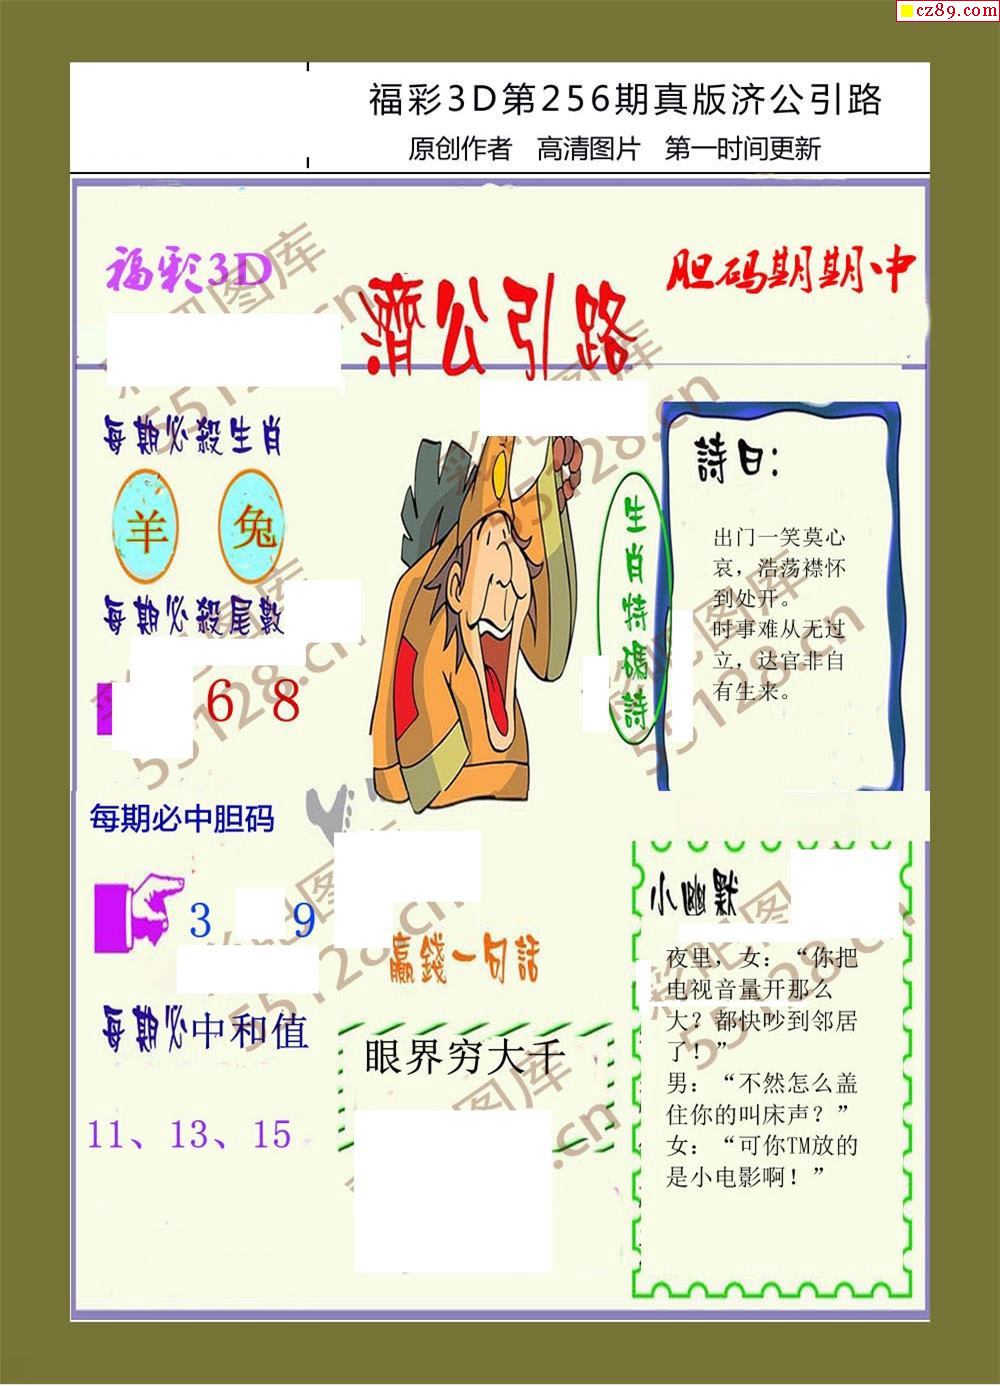 cz89.com
福彩3D第256期真版济公引路
原创作者 高清图片 第一时间更新
福彩3D
濟公引路
胆码期期中
每期必殺生肖
羊 兔
每期必殺尾數
6 8
每期必中胆码
3 9
每期必中和值
11、13、15
生肖特碼詩
詩曰：
出门一笑莫心
哀，浩荡襟怀
到处开。
时事难从无过
立，达官非自
有生来。
赢錢一句話
眼界穷大千
小幽默
夜里，女：“你把
电视音量开那么
大？都快吵到邻居
了！”
男：“不然怎么盖
住你的叫床声？”
女：“可你TM放的
是小电影啊！”
彩吧图库
55128.cn